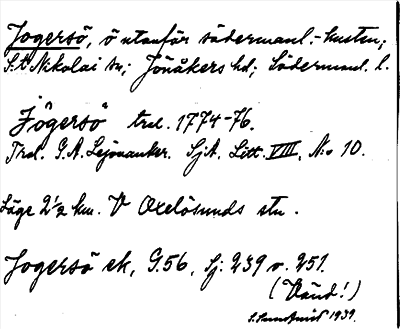 Jogersö, ö utanför södermanl.-kusten;
S:t Nikolai sn; Jönåkers hd; Södermanl. l.
Jögersö trol. 1774-76.
Trol. G.A. Lejonancker. SjA. Litt. VIII, N:o 10.
Läge 2½ km. V Oxelösunds stn.
Jogersö ek, G.56, Sj: 239 o. 251.
(Vänd!)
1939.